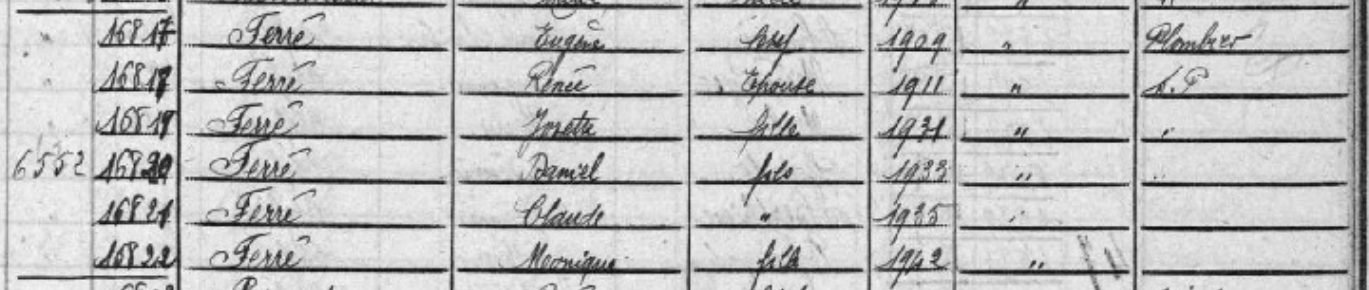 16817 Ferré Eugène chef 1909 " Plombier
16818 Ferré Renée Epouse 1911 " S.P
16819 Ferré Josette fille 1931 " "
6552 16820 Ferré Daniel fils 1933 " "
16821 Ferré Claude " 1935 "
16822 Ferré Monique fille 1942 "